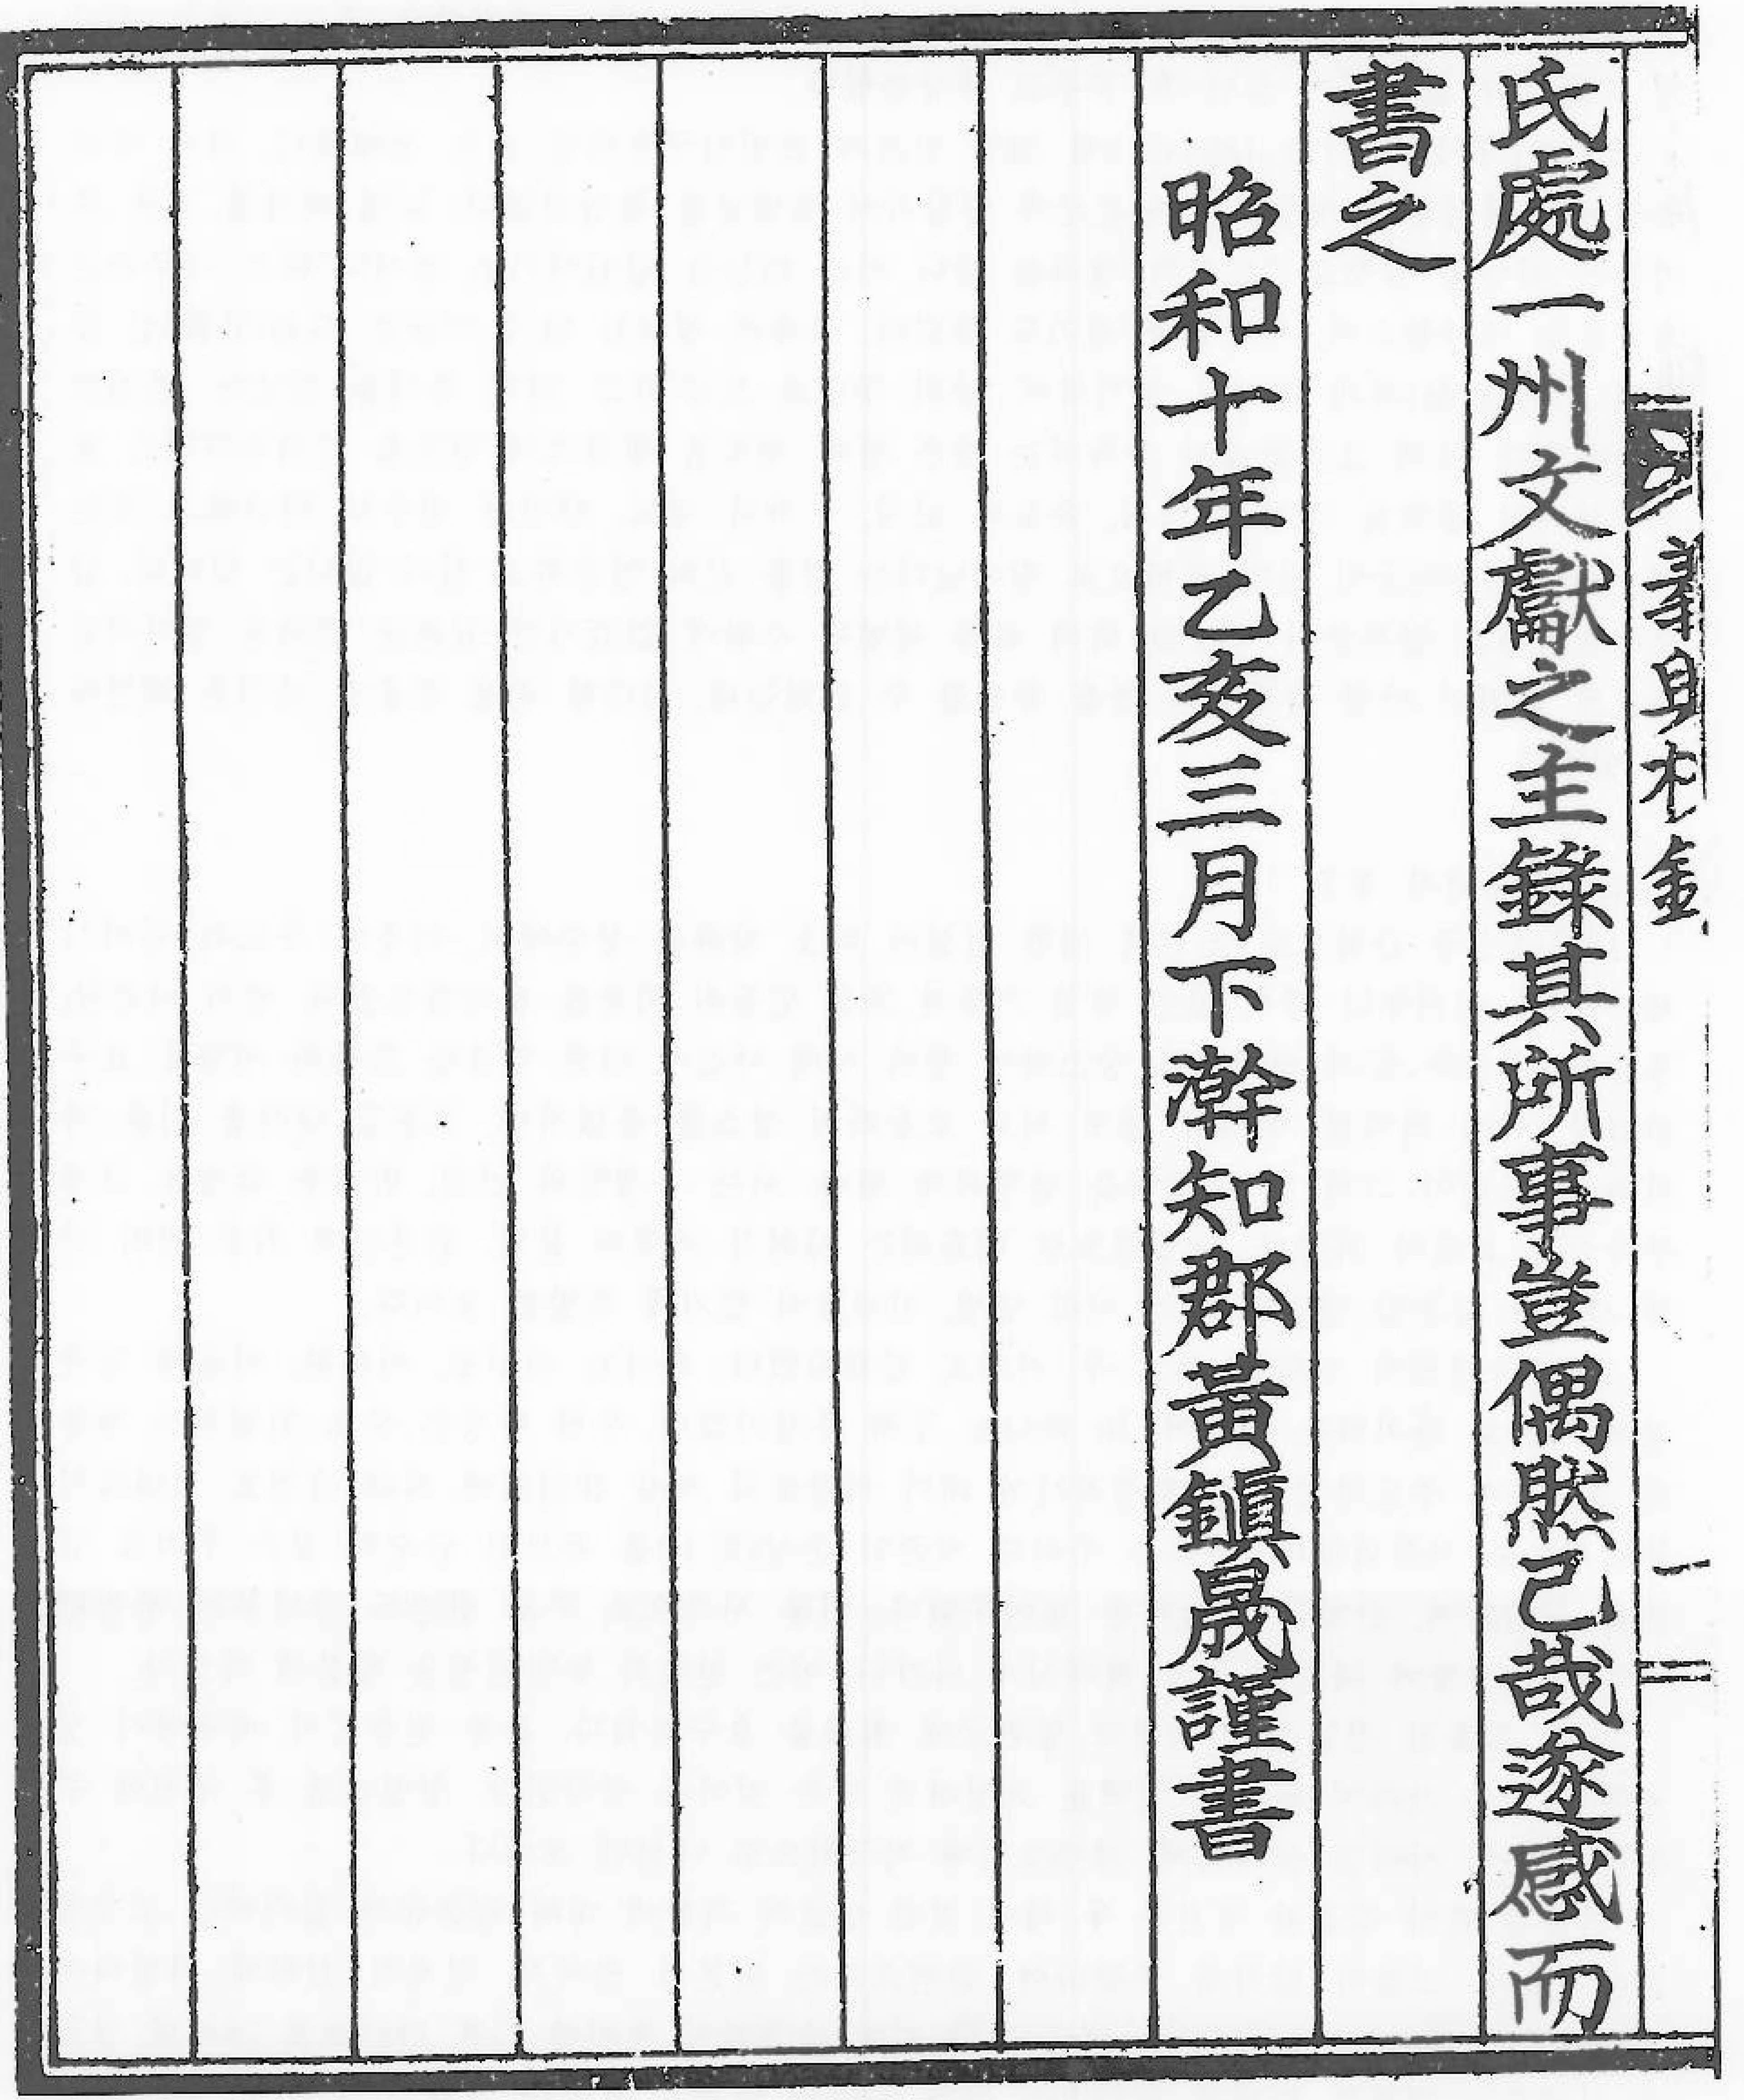 氏處一州文獻之主錄其所事豈偶然已哉遂感而
書之
昭和十年乙亥三月下澣知郡黃鎭晟謹書
一